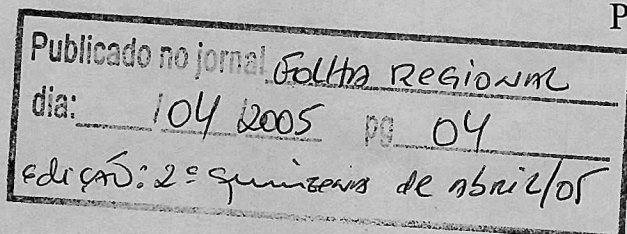 P
Publicado no jornal FOLHA REGIONAL
dia: /04/2005 pg 04
Edição: 2ª quinzena de abril/05